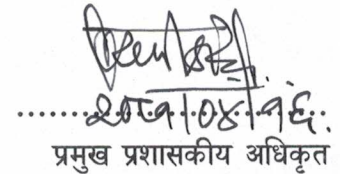 २०८१/०४/१६
प्रमुख प्रशासकीय अधिकृत